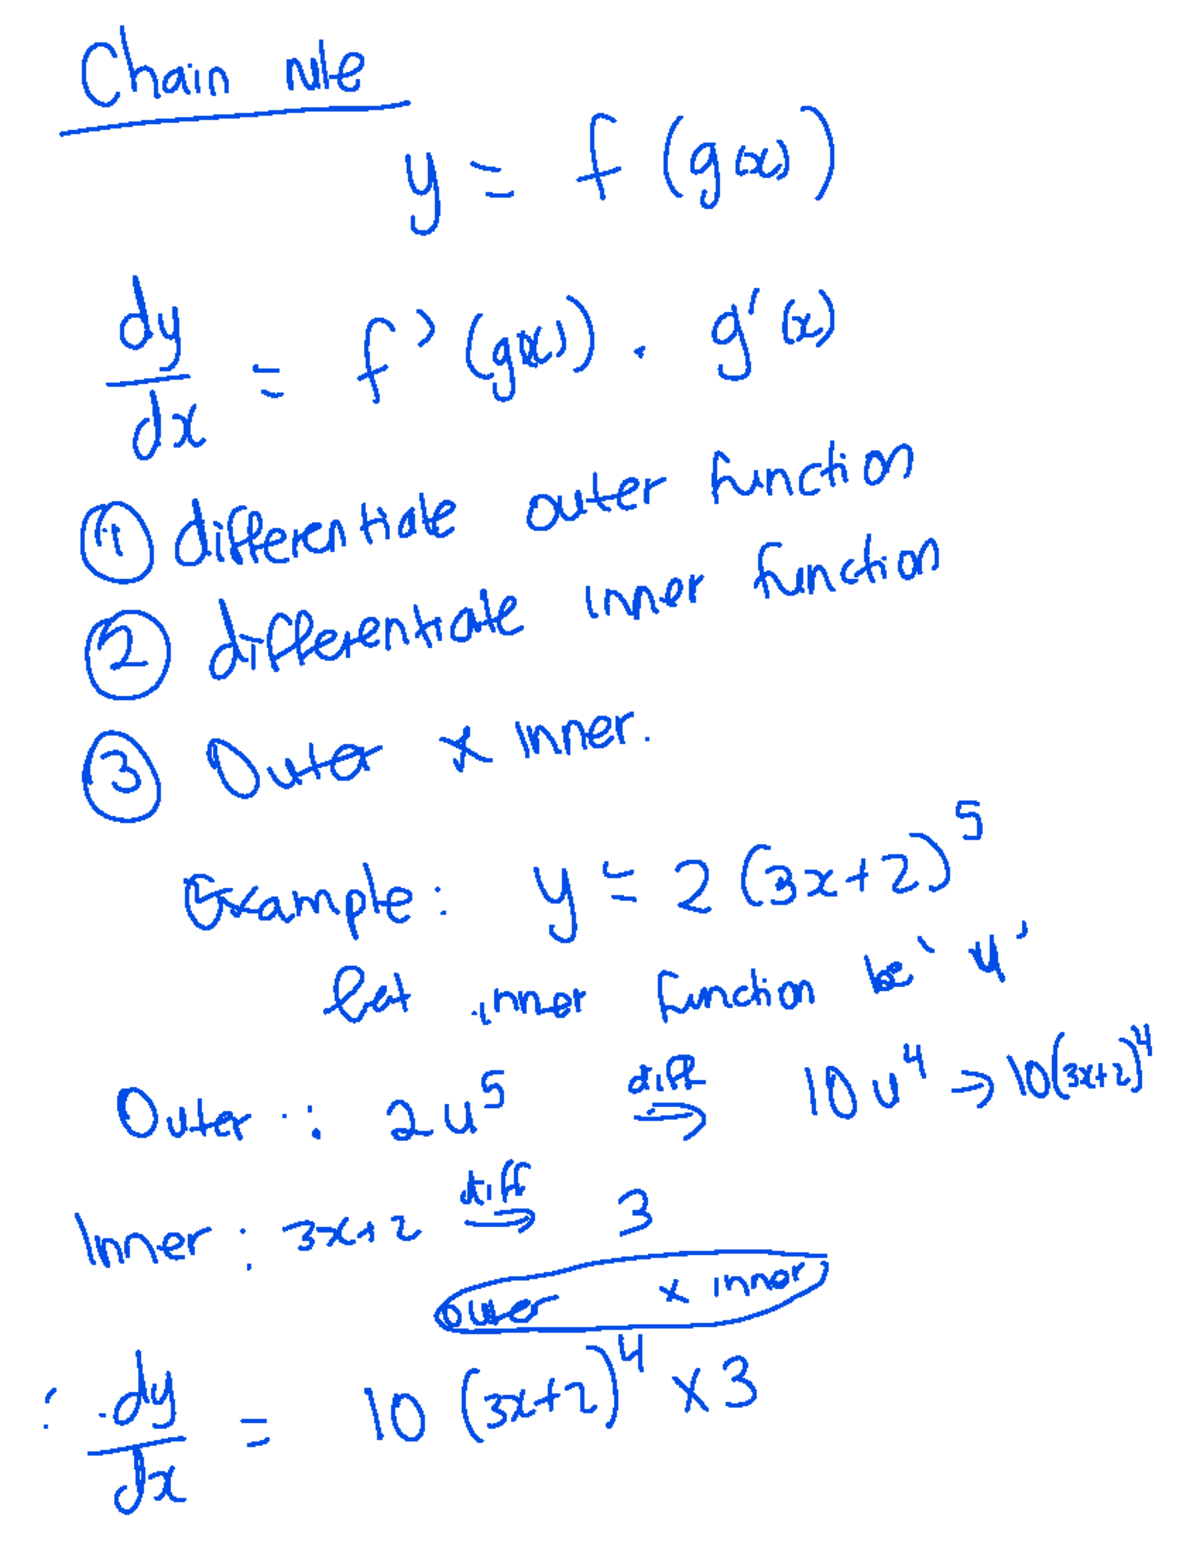 Chain rule
y = f (g(x))
dy/dx = f' (g(x)) . g'(x)
① differentiate outer function
② differentiate inner function
③ Outer x inner.
Example: y = 2 (3x+2)^5
let inner function be 'u'
Outer : 2u^5 diff → 10u^4 → 10(3x+2)^4
Inner : 3x+2 diff → 3
outer x inner
∴ dy/dx = 10 (3x+2)^4 x 3